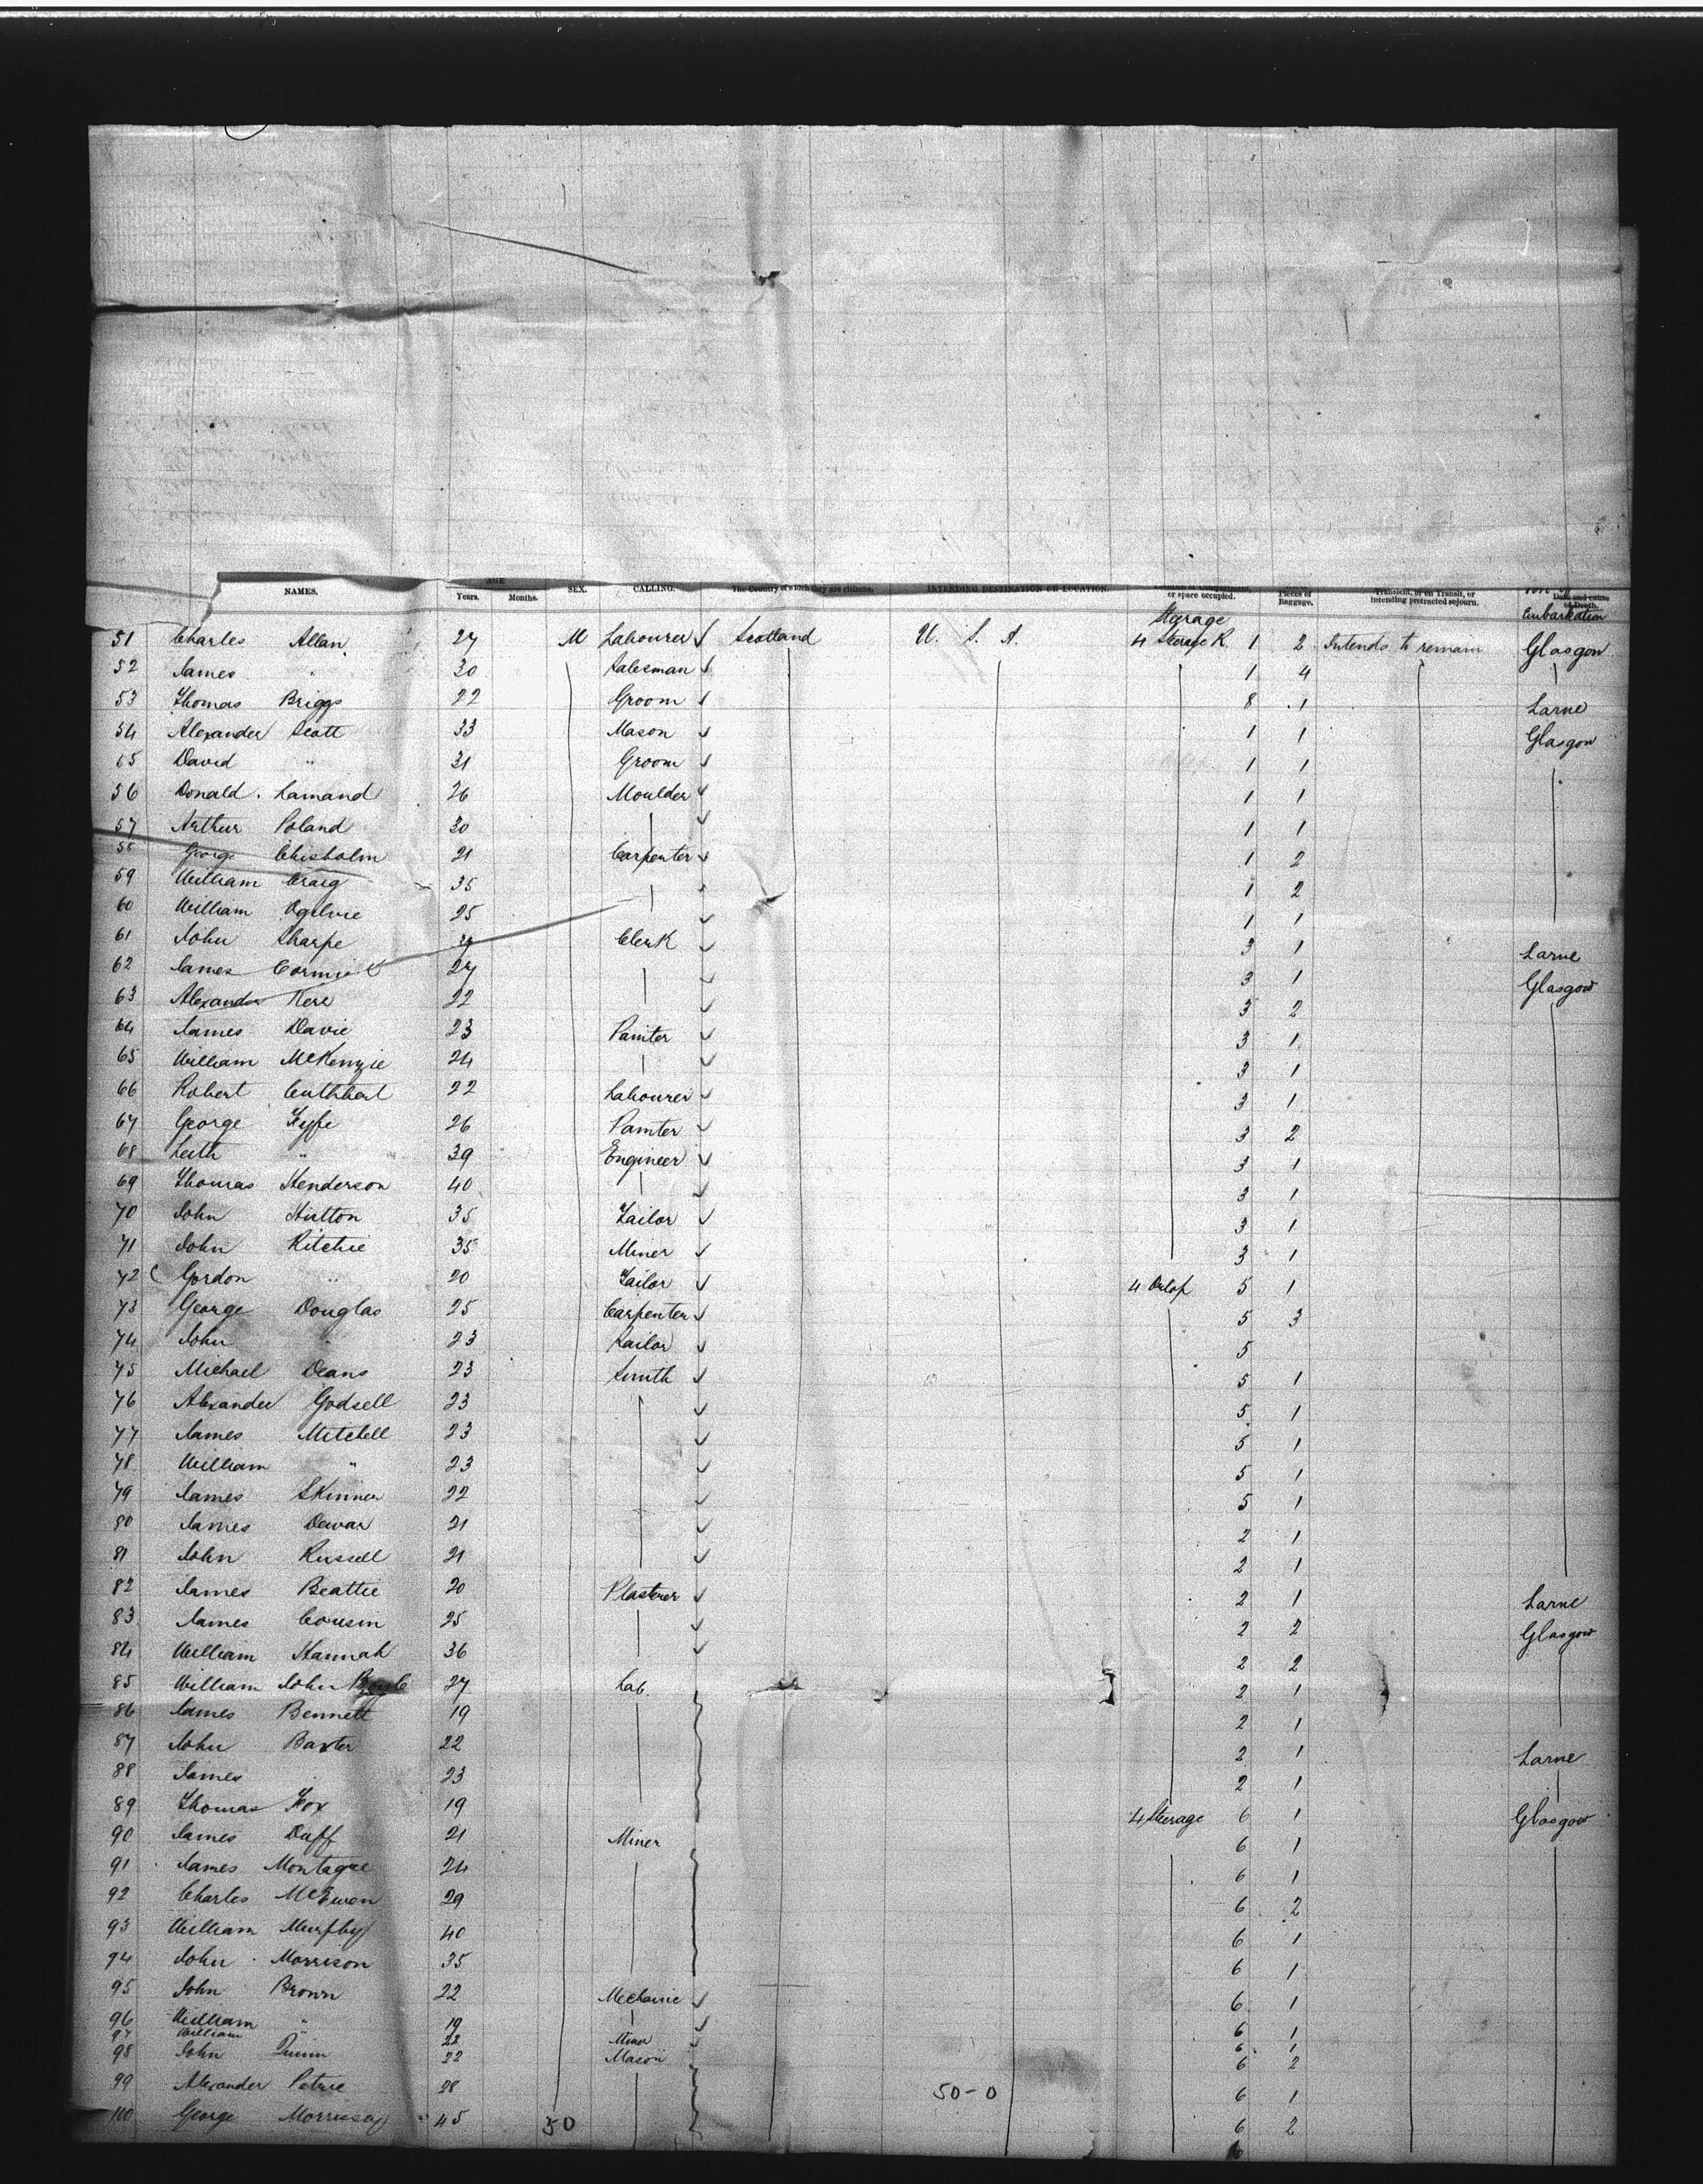 NAMES. AGE Years. Months. SEX. CALLING. The Country of which they are citizens. INTENDING DESTINATION OR LOCATION. or space occupied. Pieces of Baggage. Transient, or in Transit, or intending protracted sojourn. Date and cause of Death.
Steerage Embarkation
51 Charles Allan 27 M Labourer Scotland U. S. A. 4 Steerage R. 1 2 Intends to remain Glasgow
52 James " 30 Salesman 1 4
53 Thomas Briggs 22 Groom 8 1 Larne
54 Alexander Scott 33 Mason 1 1 Glasgow
55 David " 31 Groom 1 1
56 Donald Lamand 26 Moulder 1 1
57 Arthur Poland 30 1 1
58 George Chisholm 21 Carpenter 1 2
59 William Craig 35 1 2
60 William Ogilvie 25 1 1
61 John Sharpe Clerk 3 1 Larne
62 James Cormick 27 3 1 Glasgow
63 Alexander Kerr 22 3 2
64 James Davie 23 Painter 3 1
65 William McKenzie 24 3 1
66 Robert Cuthbert 22 Labourer 3 1
67 George Fyfe 26 Painter 3 2
68 Leith " 39 Engineer 3 1
69 Thomas Henderson 40 3 1
70 John Hutton 35 Tailor 3 1
71 John Ritchie 35 Miner 3 1
72 Gordon " 20 Tailor 4 Orlop 5 1
73 George Douglas 25 Carpenter 5 3
74 John " 23 Sailor 5
75 Michael Deans 23 Smith 5 1
76 Alexander Godsell 23 5 1
77 James Mitchell 23 5 1
78 William " 23 5 1
79 James Skinner 22 5 1
80 James Dewar 21 2 1
81 John Russell 21 2 1
82 James Beattie 20 Plasterer 2 1 Larne
83 James Cousin 25 2 2 Glasgow
84 William Hannah 36 2 2
85 William John Boyle 27 Lab. 2 1
86 James Bennett 19 2 1
87 John Baxter 22 2 1 Larne
88 James 23 2 1
89 Thomas Fox 19 4 Steerage 6 1 Glasgow
90 James Duff 21 Miner 6 1
91 James Montague 24 6 1
92 Charles McEwen 29 6 2
93 William Murphy 40 6 1
94 John Morrison 35 6 1
95 John Brown 22 Mechanic 6 1
96 William " 19 6 1
97 William " 23 Miner 6 1
98 John Quinn 22 Mason 6 2
99 Alexander Petrie 28 50-0 6 1
100 George Morrison 45 50 6 2
6